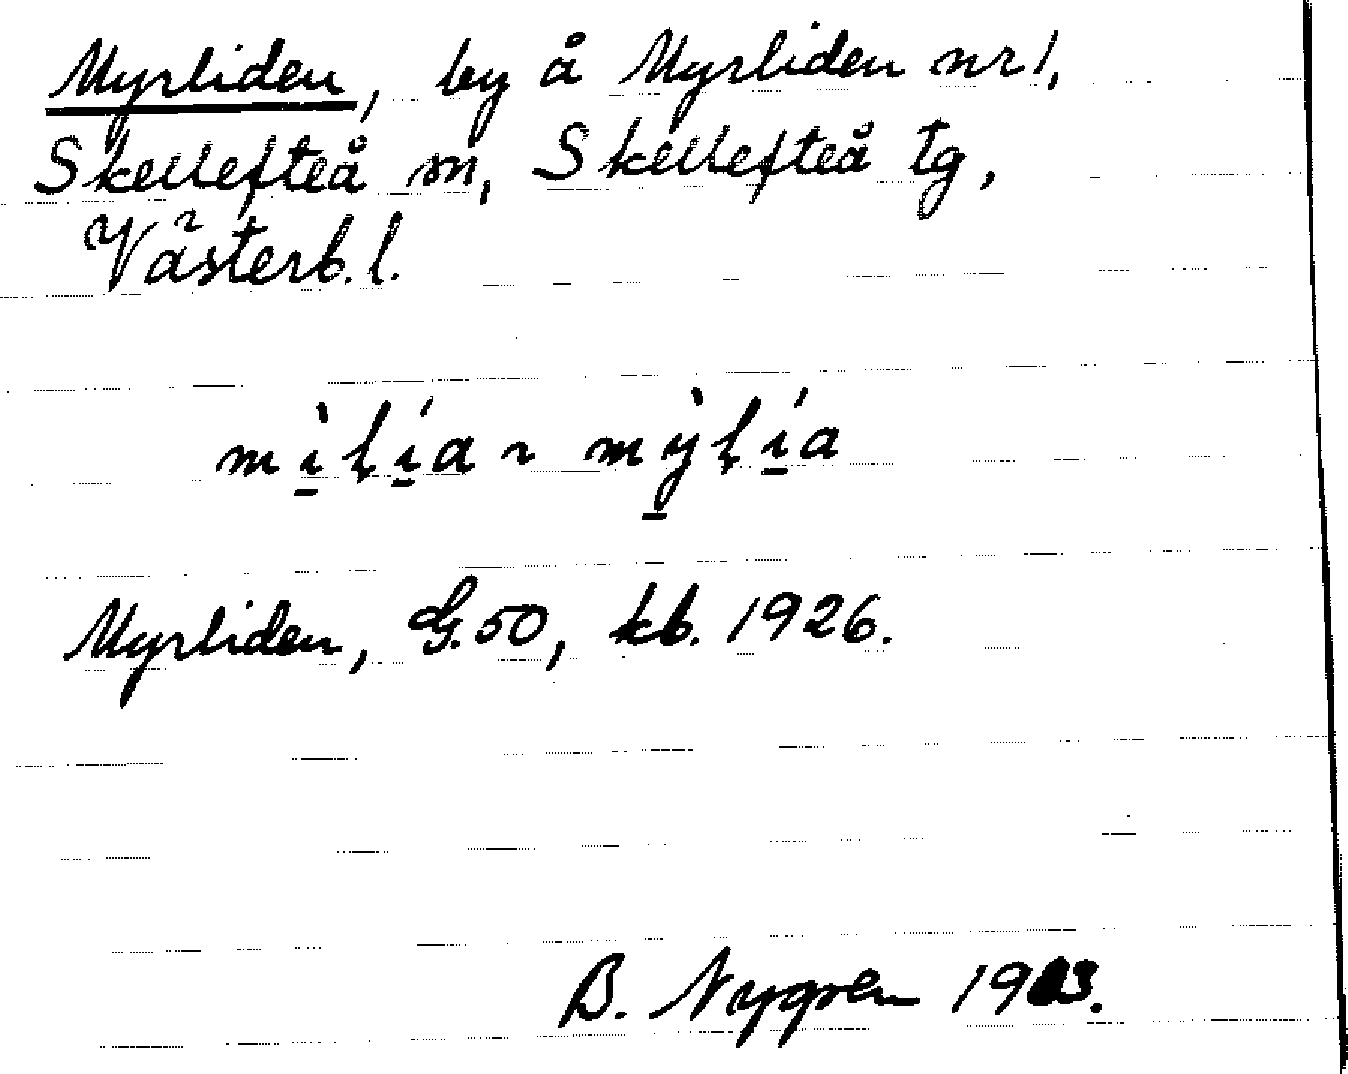 Myrliden, by å Myrliden nr 1,
Skellefteå sn, Skellefteå tg,
Västerb. l.
mı̱̀lı̱́a ~ mỳ̱lı̱́a
Myrliden, G. 50, kb. 1926.
B. Nygren